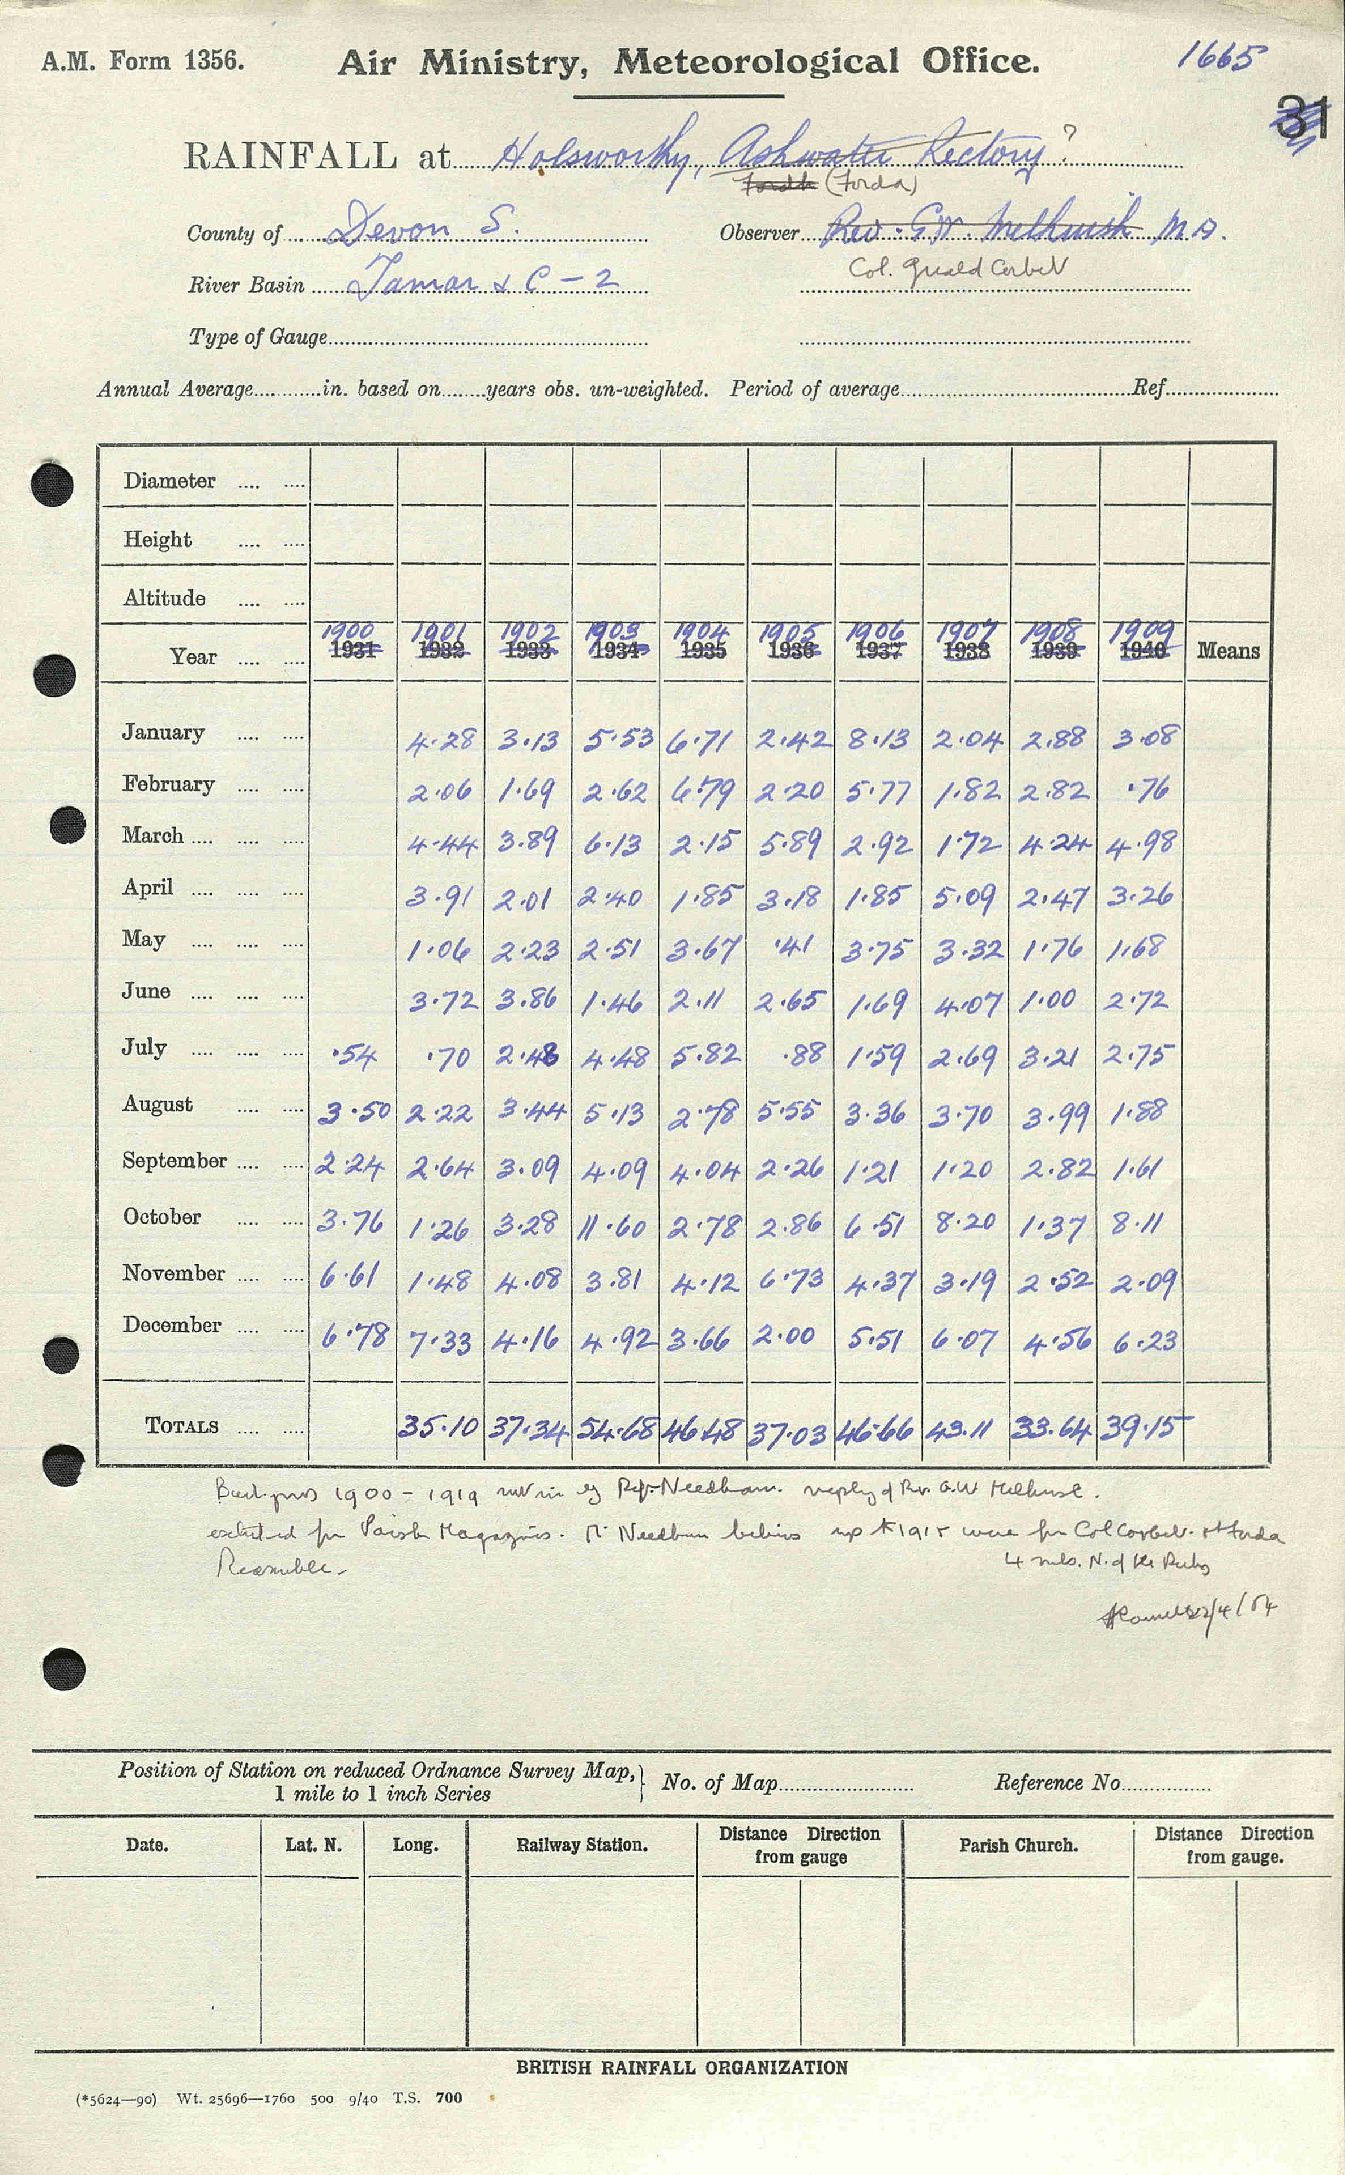 A.M. Form 1356. Air Ministry, Meteorological Office. 1665
31
RAINFALL at Holsworthy, Ashwater Rectory?
(Forda)
County of Devon S. Observer Rev. G.W. Melhuish M.A.
Col. Corbet
River Basin Tamar & C-2
Type of Gauge
Annual Average in. based on years obs. un-weighted. Period of average Ref.
Diameter
Height
Altitude
1900 1901 1902 1903 1904 1905 1906 1907 1908 1909
Year 1931 1932 1933 1934 1935 1936 1937 1938 1939 1940 Means
January 4.28 3.13 5.53 6.71 2.42 8.13 2.04 2.88 3.08
February 2.06 1.69 2.62 6.79 2.20 5.77 1.82 2.82 .76
March 4.44 3.89 6.13 2.15 5.89 2.92 1.72 4.24 4.98
April 3.91 2.01 2.40 1.85 3.18 1.85 5.09 2.47 3.26
May 1.06 2.23 2.51 3.67 .41 3.75 3.32 1.76 1.68
June 3.72 3.86 1.46 2.11 2.65 1.69 4.07 1.00 2.72
July .54 .70 2.48 4.48 5.82 .88 1.59 2.69 3.21 2.75
August 3.50 2.22 3.44 5.13 2.78 5.55 3.36 3.70 3.99 1.88
September 2.24 2.64 3.09 4.09 4.04 2.26 1.21 1.20 2.82 1.61
October 3.76 1.26 3.28 11.60 2.78 2.86 6.51 8.20 1.37 8.11
November 6.61 1.48 4.08 3.81 4.12 6.73 4.37 3.19 2.52 2.09
December 6.78 7.33 4.16 4.92 3.66 2.00 5.51 6.07 4.56 6.23
TOTALS 35.10 37.34 54.68 46.48 37.03 46.66 43.11 33.64 39.15
1900 - 1919 Needham. G.W
Parish Magazines. Needham up 1915 were Col Corbet. Forda
4 mls. N. of the
22/4/54
Position of Station on reduced Ordnance Survey Map, } No. of Map Reference No.
1 mile to 1 inch Series
Date. Lat. N. Long. Railway Station. Distance Direction Parish Church. Distance Direction
from gauge from gauge.
BRITISH RAINFALL ORGANIZATION
(*5624—90) Wt. 25696—1760 500 9/40 T.S. 700